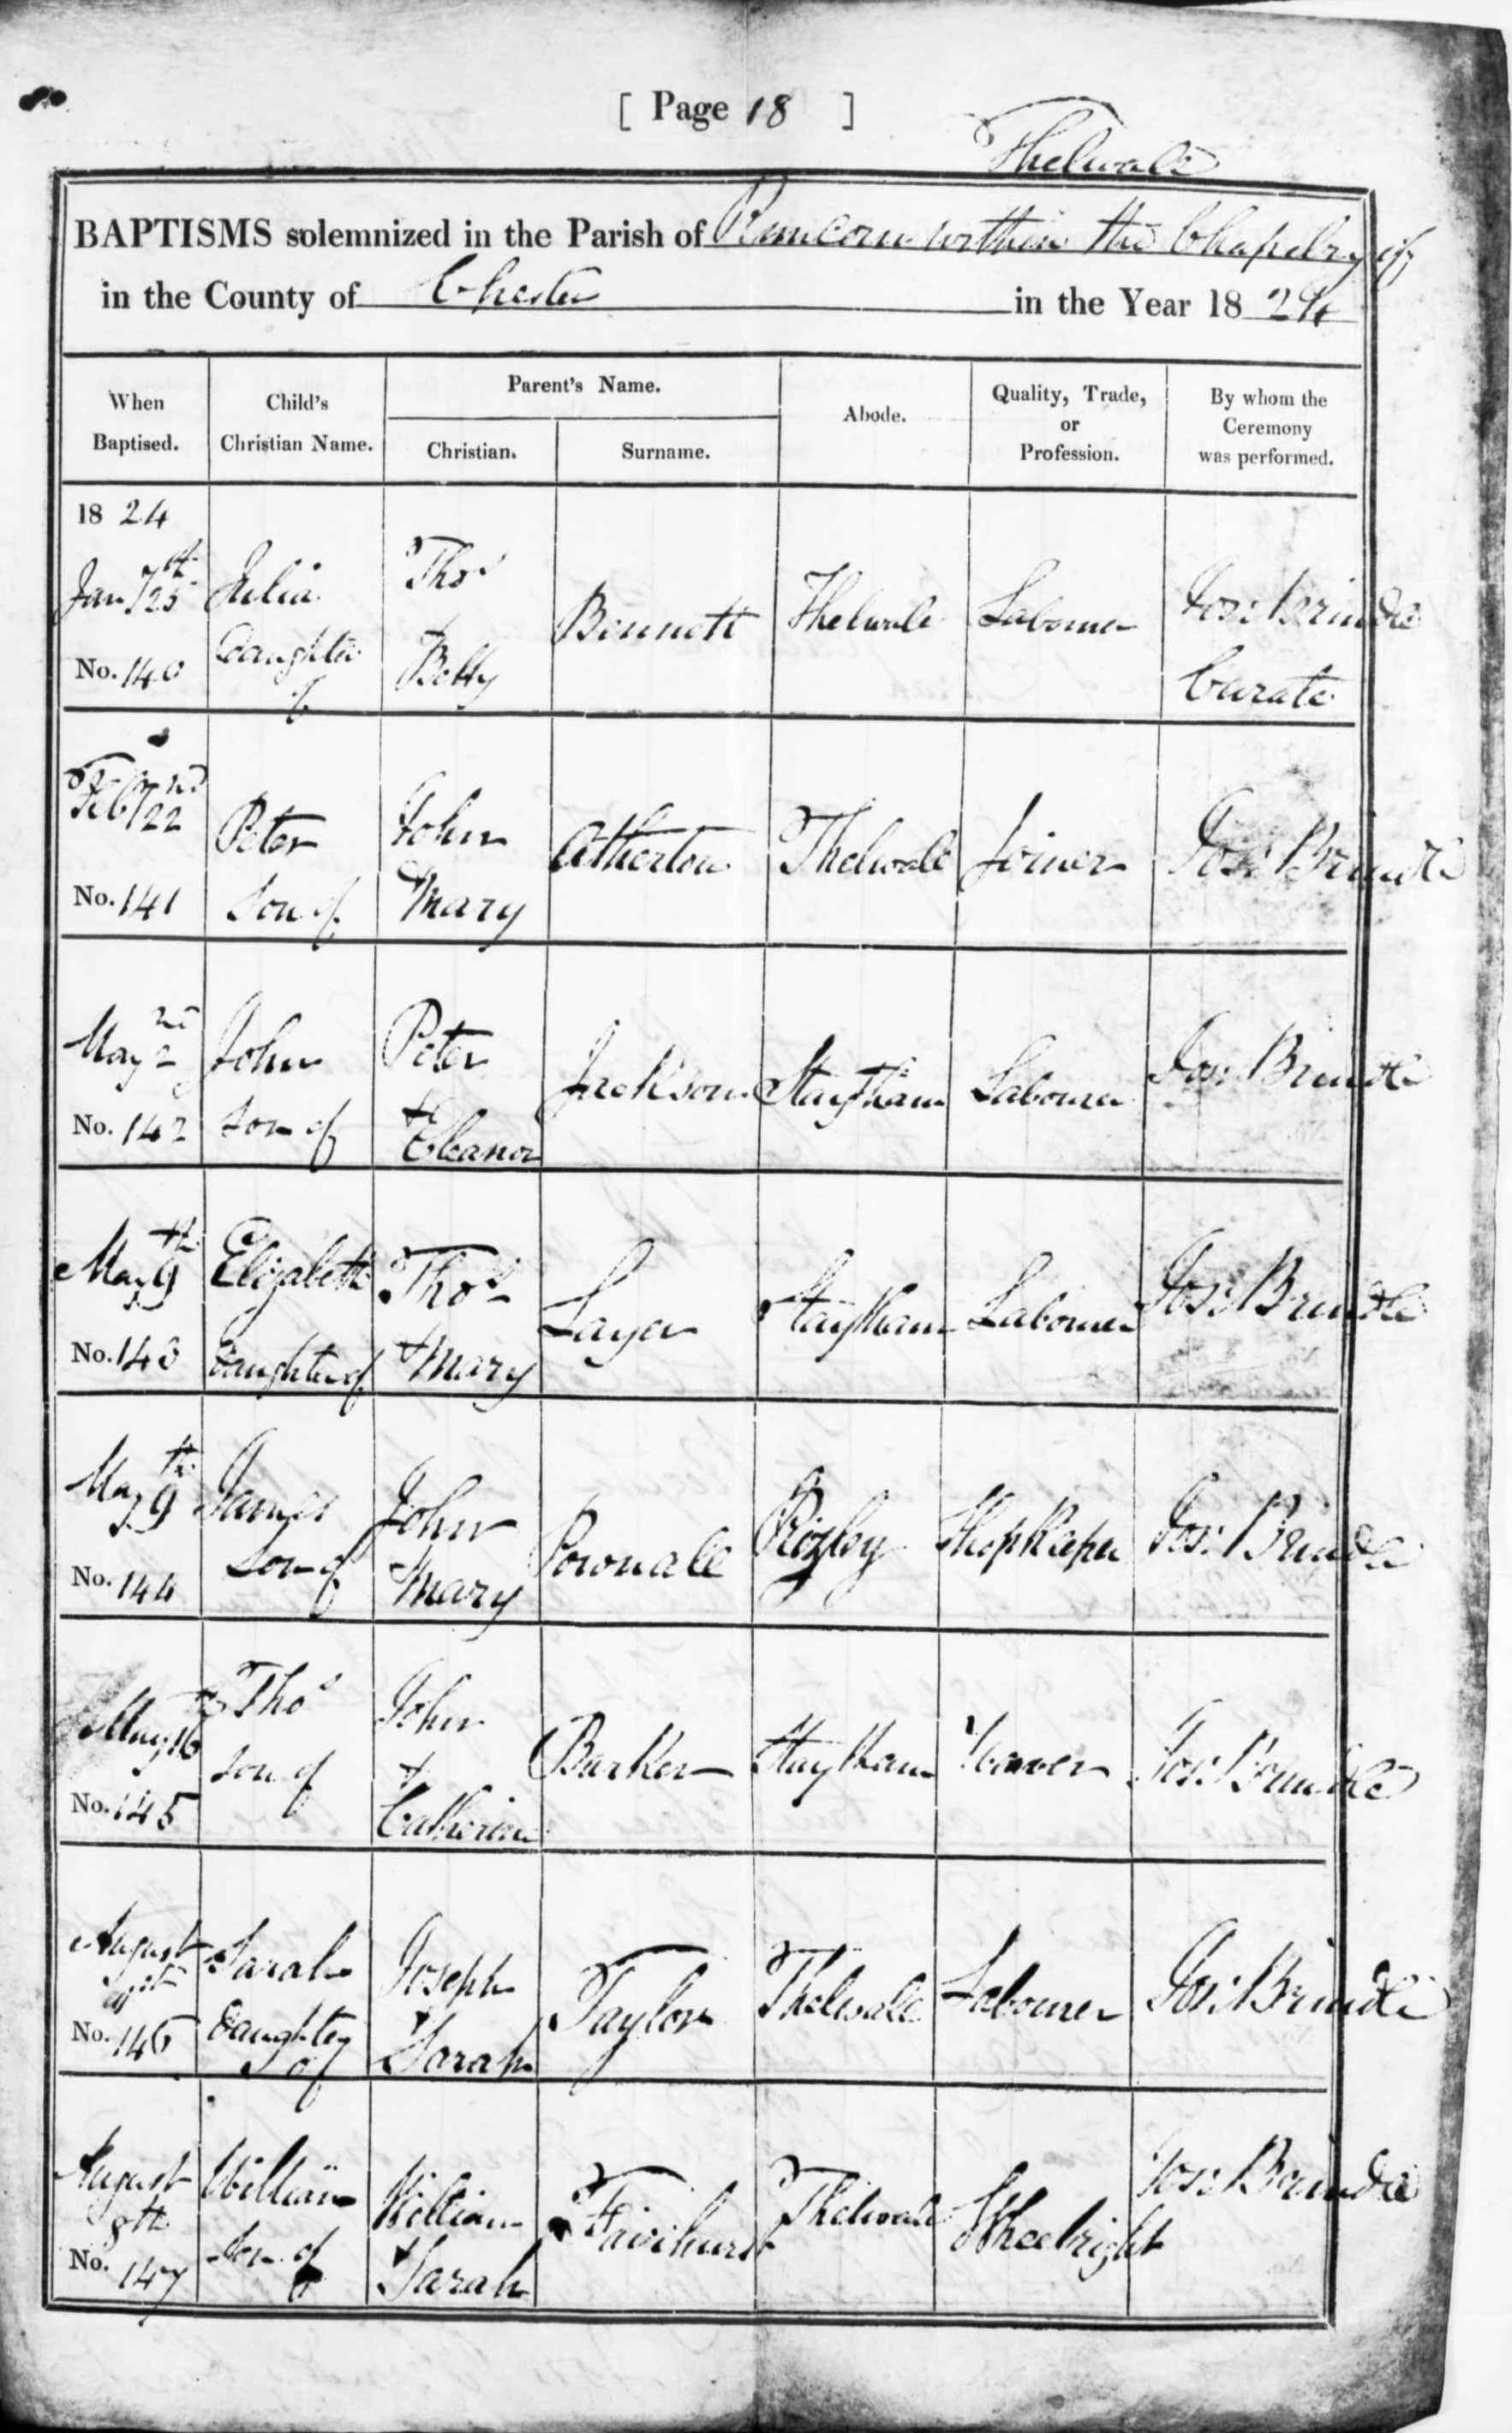 [ Page 18 ]
Thelwall
BAPTISMS solemnized in the Parish of Runcorn within the Chapelry of
in the County of Chester in the Year 18 24
When Baptised.
Child's Christian Name.
Parent's Name.
Christian.
Surname.
Abode.
Quality, Trade, or Profession.
By whom the Ceremony was performed.
18 24
Jany 25th
No. 140
Julia
Daughter
of
Thos
&
Betty
Bennett
Thelwall
Labourer
Jos: Brindle
Curate
Feby 22nd
No. 141
Peter
Son of
John
Mary
Atherton
Thelwall
Joiner
Jos: Brindle
May 2nd
No. 142
John
Son of
Peter
&
Eleanor
Jackson
Staytham
Labourer
Jos: Brindle
May 9th
No. 143
Elizabeth
Daughter of
Thos
& Mary
Staytham
Labourer
Jos: Brindle
May 9th
No. 144
James
Son of
John
Mary
Pownall
Shopkeper
Jos: Brindle
May 16th
No. 145
Thos
Son of
John
&
Catherine
Barker
Staytham
Weaver
Jos: Brindle
August
1st
No. 146
Sarah
Daughter
of
Joseph
&
Sarah
Taylor
Thelwall
Labourer
Jos: Brindle
August
8th
No. 147
William
Son of
William
&
Sarah
Fairhurst
Thelwall
Wheelright
Jos: Brindle